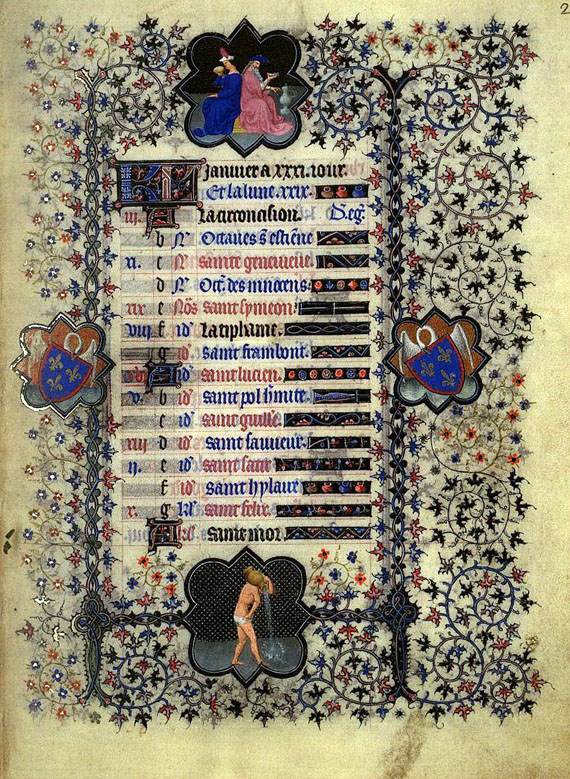 2
KL Janvier a xxxi. iour.
Et la lune. xxix.
iii. A La circoncision. D. eg.
b N Octaues s. estiene
xi. c N sainte geneuieue.
d N Oct. des innocens.
xix e Nos saint symeon.
viii f id La tiphame.
g id saint frambout.
xvi A id saint lucien.
v. b id saint pol hmite.
c id saint guille.
xiii d id saint sauueur.
ii. e id saint satir
f id saint hylaire
x. g kl saint felix.
A kl saint mor.